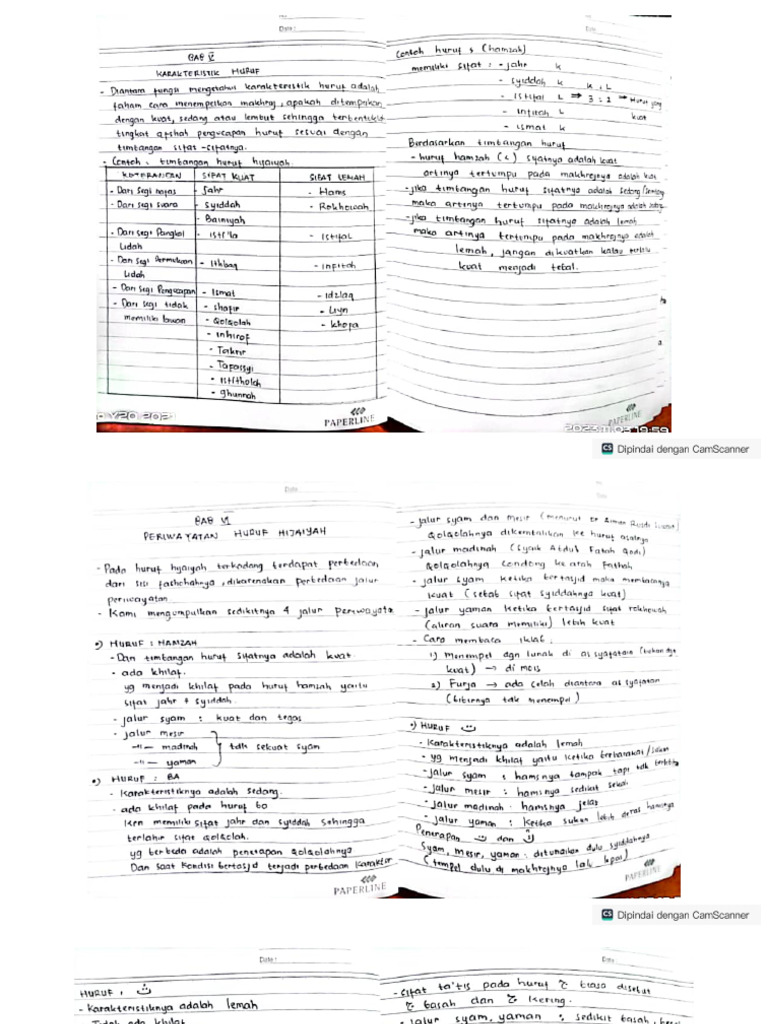 Date :
BAB V
KARAKTERISTIK HURUF
- Diantara fungsi mengetahui karakteristik huruf adalah
faham cara menempelkan makhraj, apakah ditempelkan
dengan kuat, sedang atau lembut sehingga terbentuklah
tingkat afshah pengucapan huruf sesuai dengan
timbangan sifat-sifatnya.
- Contoh : timbangan huruf hijaiyah.
KETERANGAN SIFAT KUAT SIFAT LEMAH
- Dari segi nafas - Jahr - Hams
- Dari segi suara - Syiddah - Rokhowah
- Bainiyah
- Dari segi Pangkal - Isti'la - Istifal
Lidah
- Dari segi Permukaan - Itkbaq - Infitah
Lidah
- Dari segi Pengucapan - Ismat - Idzlaq
- Dari segi tidak - Shafir - Liyn
memiliki lawan - Qolqolah - Khofa
- Inhirof
- Takrir
- Tafassyi
- Istitholah
- Ghunnah
Y20 2021
PAPERLINE
Contoh huruf ء (hamzah)
memiliki sifat : - jahr k
- syiddah k K, L
- istifal L ⇒ 3 : 2 → Huruf yang
- infitah L kuat
- ismat k
Berdasarkan timbangan huruf
- huruf hamzah (ء) sifatnya adalah kuat
artinya tertumpu pada makhrejnya adalah kuat
- jika timbangan huruf sifatnya adalah sedang
maka artinya tertumpu pada makhrejnya adalah sedang
- jika timbangan huruf sifatnya adalah lemah
maka artinya tertumpu pada makhrejnya adalah
lemah, jangan dikuatkan kalau terlalu
kuat menjadi tebal.
PAPERLINE
2023 11 03 19:59
CS Dipindai dengan CamScanner
Date
BAB VI
PERIWAYATAN HURUF HIJAIYAH
- Pada huruf hijaiyah terkadang terdapat perbedaan
dari sisi fashohahnya, dikarenakan perbedaan jalur
periwayatan
- Kami mengumpulkan sedikitnya 4 jalur periwayata
•) HURUF : HAMZAH
- Dan timbangan huruf sifatnya adalah kuat.
- ada khilaf.
yg menjadi khilaf pada huruf hamzah yaitu
sifat jahr & syiddah.
- jalur syam : kuat dan tegas
- jalur mesir
-"- madinah } tdk sekuat syam
-"- yaman
•) HURUF : BA
- Karakteristiknya adalah sedang.
- ada khilaf pada huruf ba
krn memiliki sifat jahr dan syiddah sehingga
terlahir sifat qolqolah.
yg berbeda adalah penerapan qolqolahnya
Dan saat kondisi bertasjid terjadi perbedaan karakter
PAPERLINE
- jalur syam dan mesir (menurut Aiman Rusdi Suwaid)
qolqolahnya dikembalikan ke huruf asalnya
- jalur madinah (Syaik Abdul Fatah Qodi)
qolqolahnya condong ke arah Fathah
- jalur syam ketika bertasjid maka membacanya
kuat (sebab sifat syiddahnya kuat)
- jalur yaman ketika bertasjid sifat rokhowah
(aliran suara memiliki) lebih kuat
- Cara membaca iklab :
1) Menempel dgn lunak di as syafatain (bukan dgn
kuat) → di mesir
2) Furja → ada celah diantara as syafatain
(bibirnya tdk menempel)
•) HURUF ت
- Karakteristiknya adalah lemah
- yg menjadi khilaf yaitu ketika berharakat/sukun
- jalur syam : hamsnya tampak tapi tdk berlebih
- jalur mesir : hamsnya sedikit sekali
- jalur madinah : hamsnya jelas
- jalur yaman : ketika sukun lebih deras hamsnya
Penerapan ت dan ك
Syam, mesir, yaman : ditunaikan dulu syiddahnya
(tempel dulu di makhrejnya lalu lepas)
PAPERLINE
CS Dipindai dengan CamScanner
Date :
HURUF : ث
- Karakteristiknya adalah lemah
- Tidak ada khilaf
Date :
- sifat ta'tis pada huruf ج biasa disebut
ج basah dan ج kering.
- jalur syam, yaman : sedikit basah,